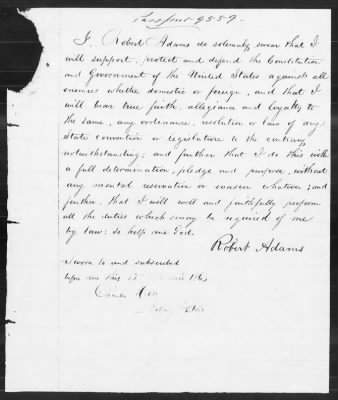 Passport 9559.
I, Robert Adams do solemnly swear that I
will support, protect and defend the Constitution
and Government of the United States against all
enemies whether domestic or foreign, and that I
will bear true faith, allegiance and loyalty to
the same, any ordinance, resolution or law of any
State convention or legislature to the contrary
notwithstanding; and further that I do this with
a full determination, pledge and purpose, without
any mental reservation or evasion whatever; and
further, that I will well and faithfully perform
all the duties which may be required of me
by law: so help me God.
Robert Adams
Sworn to and subscribed
before me this 186